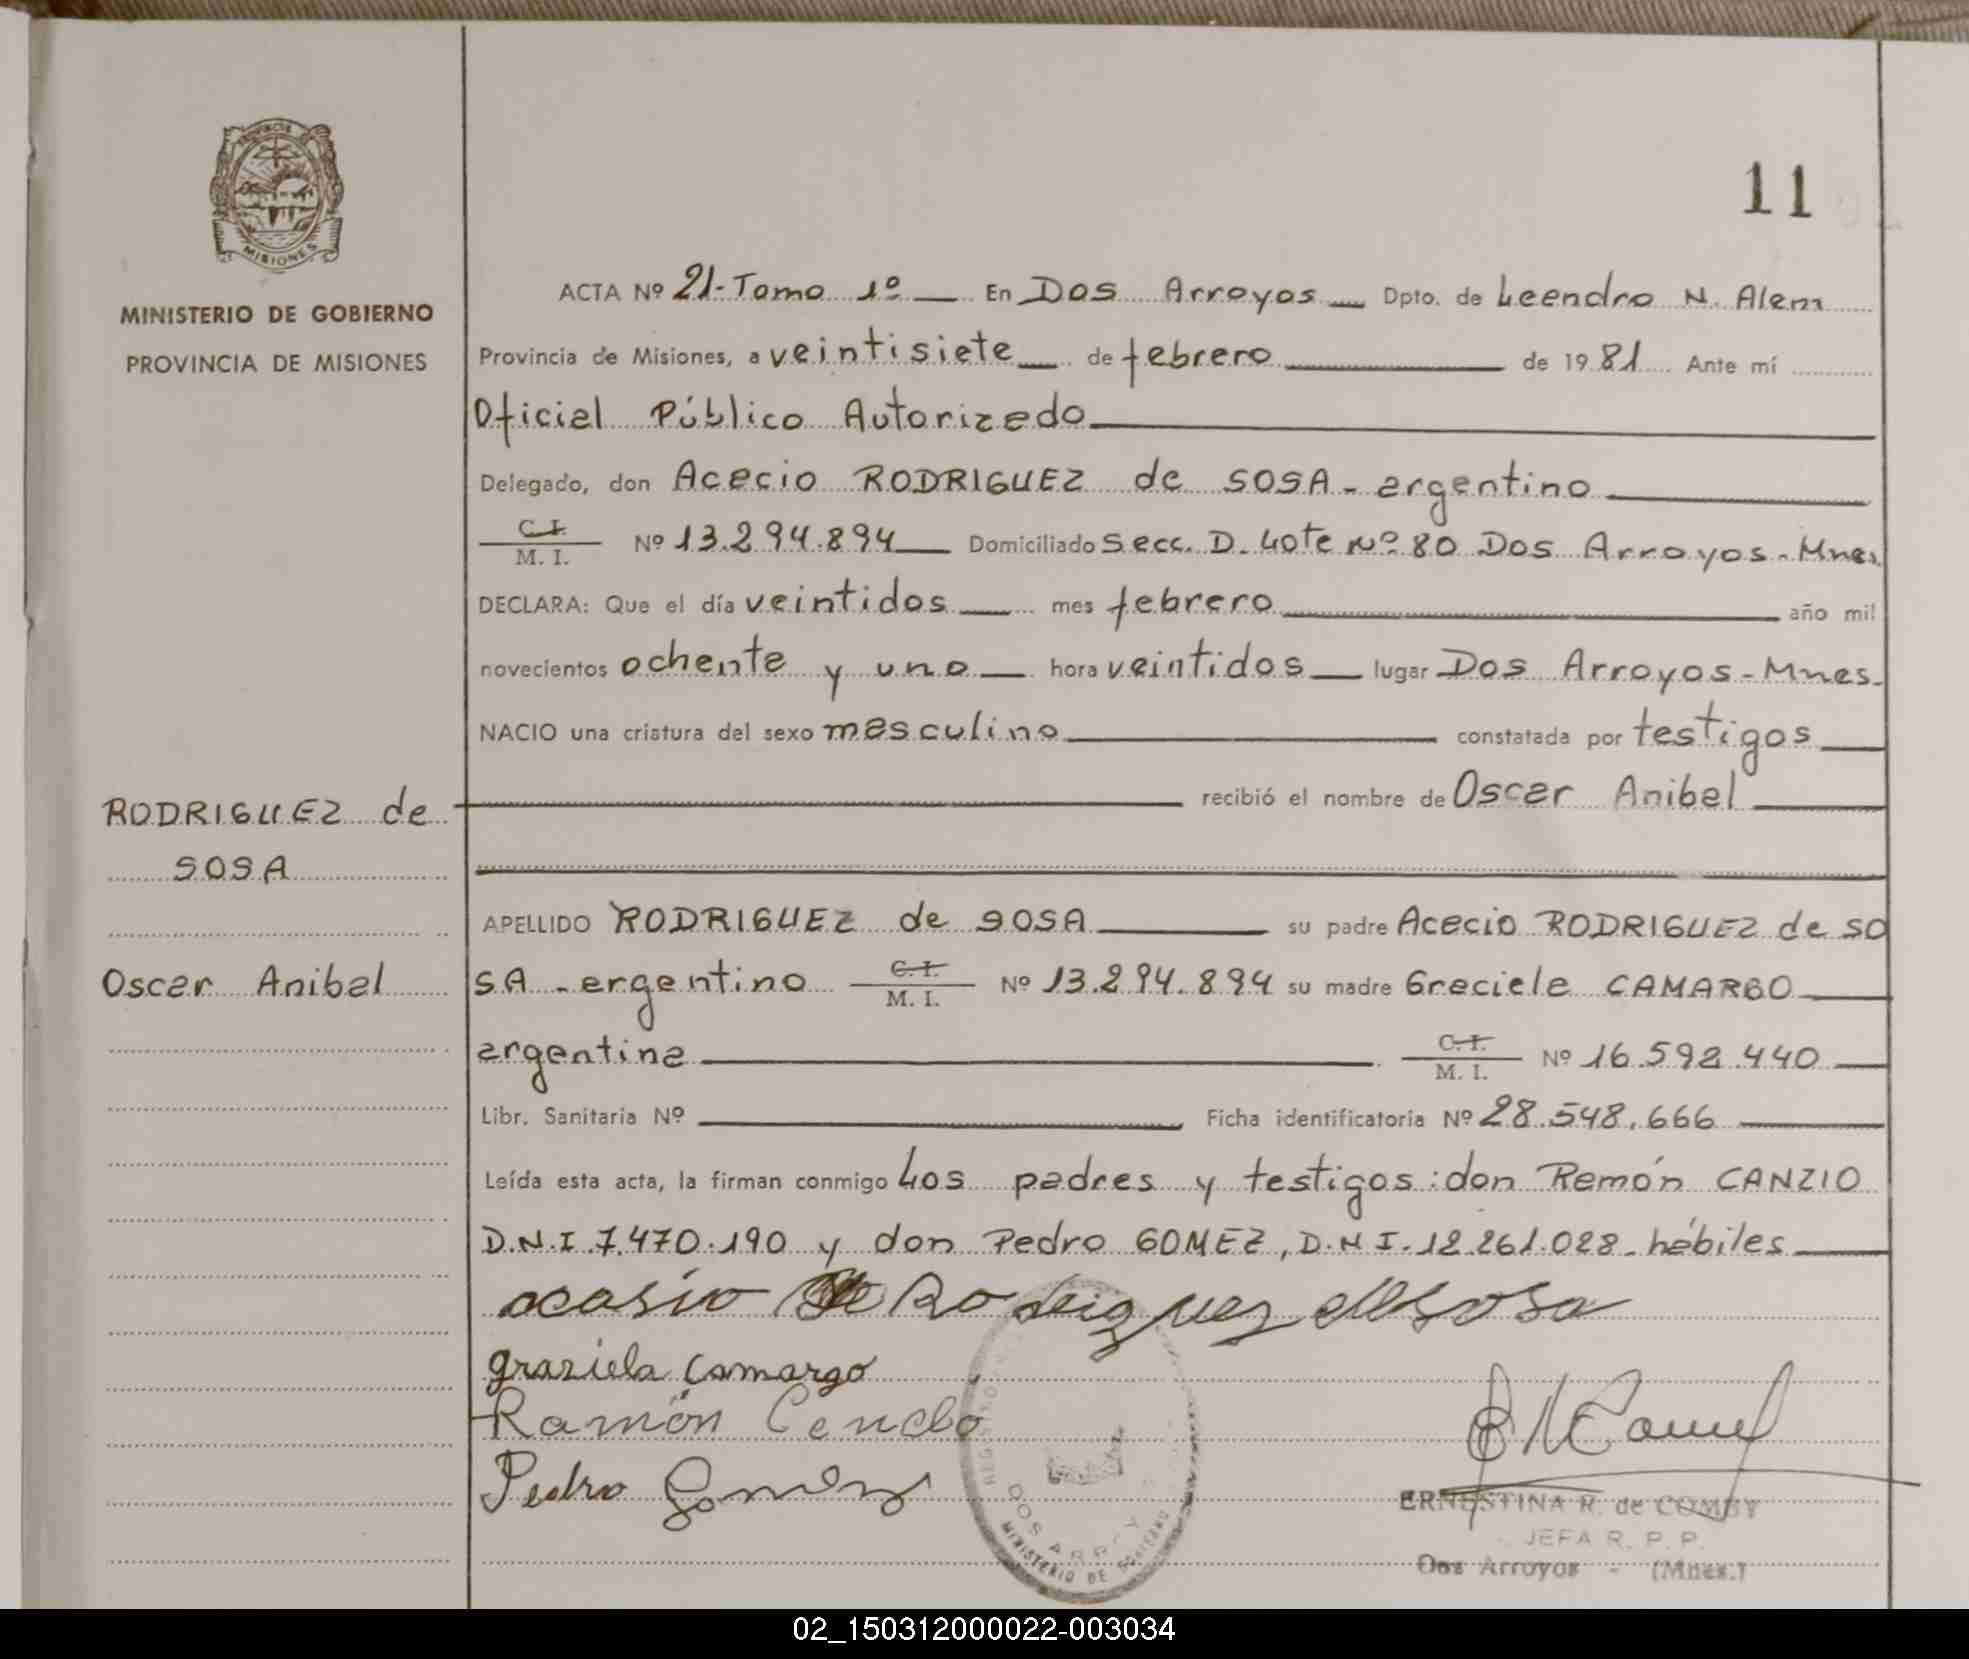 PROVINCIA
MISIONES
MINISTERIO DE GOBIERNO
PROVINCIA DE MISIONES
RODRIGUEZ de
SOSA
Oscar Anibal
11
ACTA Nº 21-Tomo 1º En Dos Arroyos Dpto. de Leandro N. Alem
Provincia de Misiones, a veintisiete de febrero de 1981 Ante mí
Oficial Público Autorizado
Delegado, don Acacio RODRIGUEZ de SOSA - argentino
C.I. / M.I. Nº 13.294.894 Domiciliado Secc. D. Lote Nº 80 Dos Arroyos - Mnes.
DECLARA: Que el día veintidos mes febrero año mil
novecientos ochenta y uno hora veintidos lugar Dos Arroyos - Mnes.
NACIO una criatura del sexo masculino constatada por testigos
recibió el nombre de Oscar Anibal
APELLIDO RODRIGUEZ de SOSA su padre Acacio RODRIGUEZ de SO
SA - argentino C.I. / M.I. Nº 13.294.894 su madre Graciela CAMARGO
argentina C.I. / M.I. Nº 16.592.440
Libr. Sanitaria Nº Ficha identificatoria Nº 28.548.666
Leída esta acta, la firman conmigo Los padres y testigos: don Ramón CANZIO
D.N.I 7.470.190 y don Pedro GOMEZ, D.N.I. 12.261.028 - hábiles
acasio Rodriguez de Sosa
graziela camargo
Ramón
Pedro Gomez
DOS ARROYOS
MINISTERIO DE GOBIERNO
ERNESTINA R. de COMBY
JEFA R. P. P.
Dos Arroyos - (Mnes.)
02_150312000022-003034